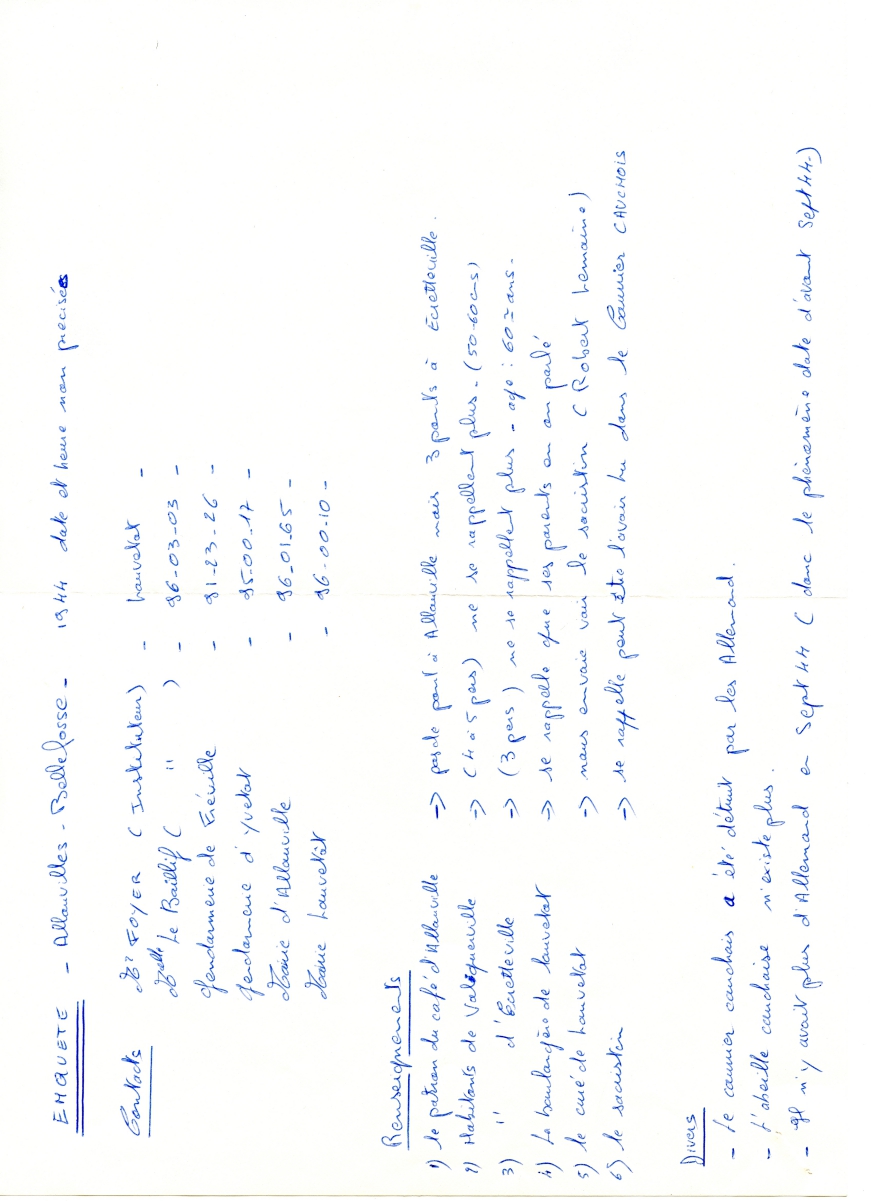 ENQUETE - Allouvilles - Bellefosse - 1944 date et heure non précisées
Contacts
Mr FOYER (Instituteur) - Louvetot -
Melle Le Baillif ( " ) - 96-03-03 -
Gendarmerie de Fréville - 91-23-26 -
Gendarmerie d'Yvetot - 95-00-17 -
Mairie d'Allouville - 96-01-65 -
Mairie Louvetôt - 96-00-10 -
Renseignements
1) Le patron du café d'Allouville -> pas de pont à Allouville mais 3 ponts à Ecretteville.
2) Habitants de Valiquerville -> (4 à 5 pers) ne se rappellent plus - (50-60ans)
3) " d'Ecretteville -> (3 pers) ne se rappellent plus - age : 60 ans -
4) La boulangère de Louvetot -> se rappelle que ses parents en on parlé
5) Le curé de Louvetot -> nous envoie voir le sacristin (Robert Lemaine)
6) Le sacristin -> se rappelle peut être l'avoir lu dans le Courrier CAUCHOIS
Divers
- Le courrier cauchois a été détruit par les Allemand.
- L'abeille cauchoise n'existe plus.
- Il n'y avait plus d'Allemand en Sept 44 (donc le phénomène date d'avant Sept 44-)